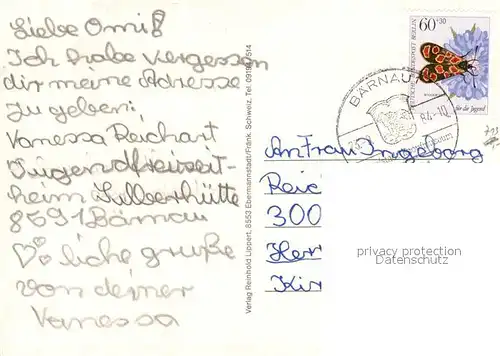 Liebe Omi!
Ich habe vergessen
dir meine Adresse
zu geben:
Vanessa Reichart
Jugendfreizeit-
heim Silberhütte
8591 Bärnau
♡ liche grüße
von deiner
Vanessa
Verlag Reinhold Lippert, 8553 Ebermannstadt/Fränk. Schweiz, Tel. 09194/514
60+30
DEUTSCHE BUNDESPOST BERLIN
für die Jugend
BÄRNAU
An Frau Ingeborg
Reic
300
Her
Kir
privacy protection
Datenschutz